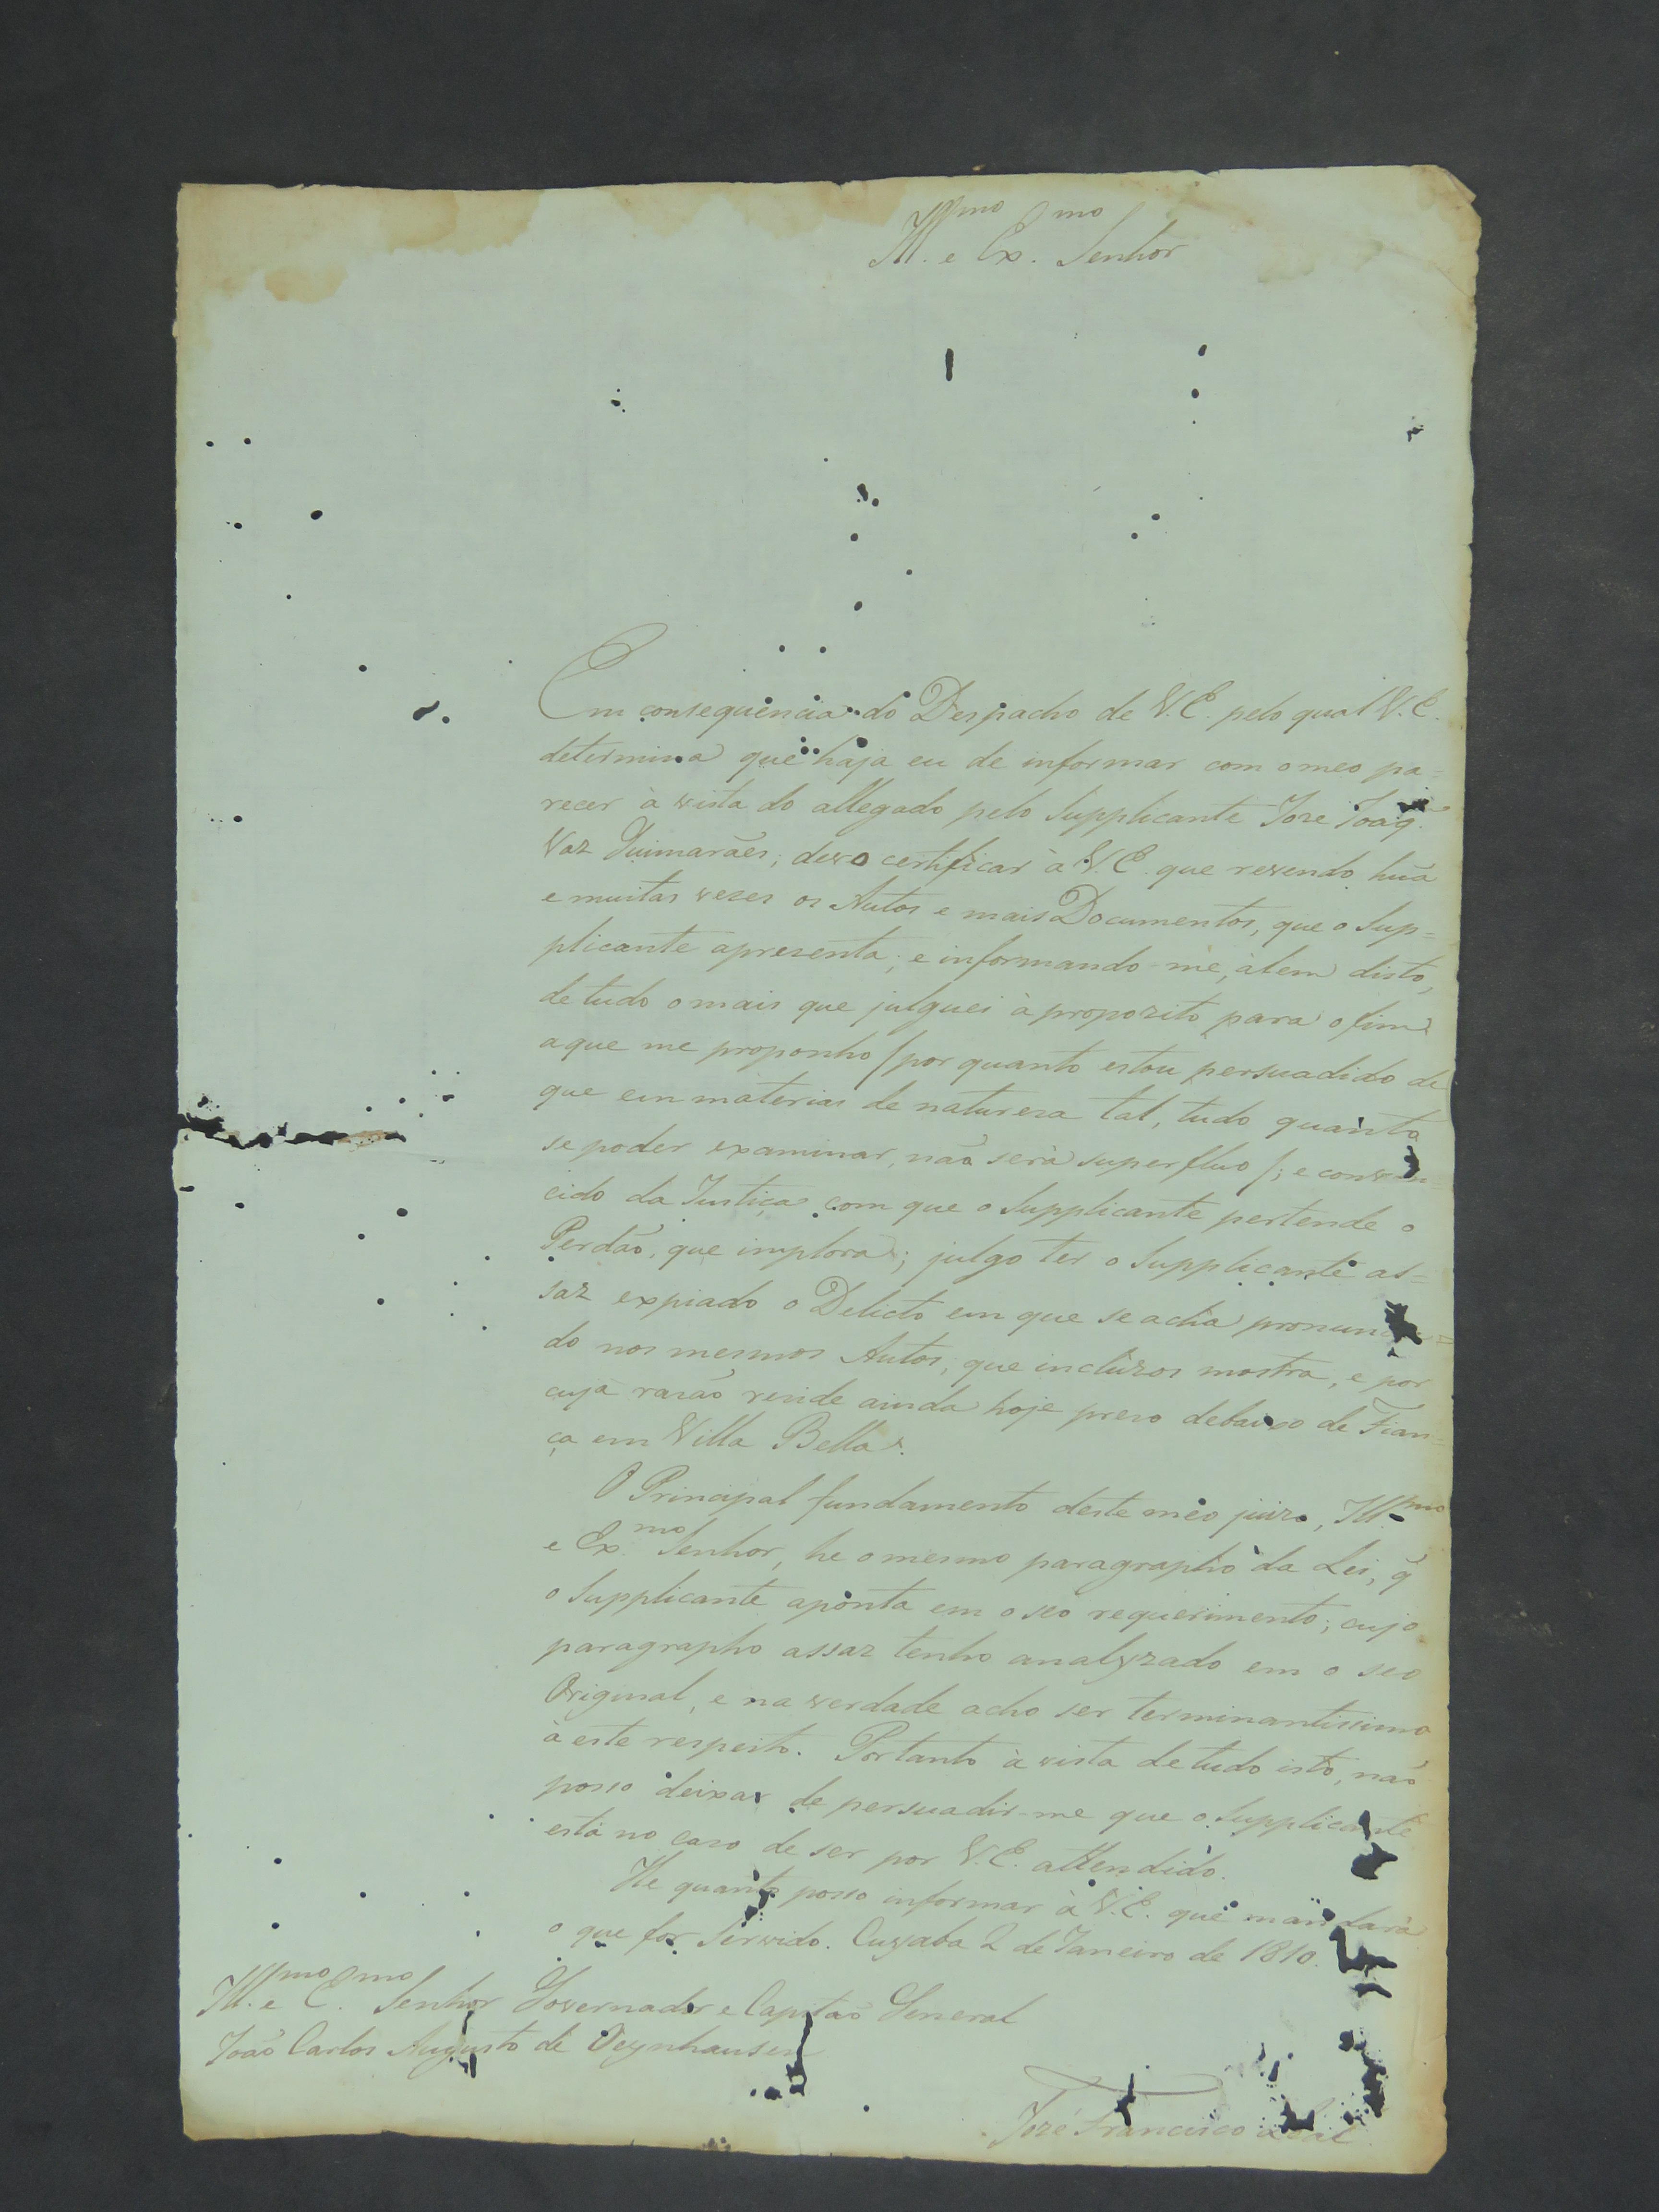 Ill.mo e Ex.mo Senhor
Em consequencia do Despacho de V.E. pelo qual V.E.
determina que haja eu de informar com o meo pa=
recer à vista do allegado pelo Supplicante Joze Joaq.
Vaz Guimarães; devo certificar à V.E. que revendo huã
e muitas vezes os Autos e mais Documentos, que o Sup=
plicante aprezenta; e informando-me, àlem disto,
de tudo o mais que julguei à propozito para o fim
a que me proponho (por quanto estou persuadido de
que em materias de natureza tal, tudo quanto
se poder examinar, não serà superfluo); e conven
cido da Justiça com que o Supplicante pertende o
Perdão, que implora; julgo ter o Supplicante as=
saz expiado o Delicto em que se acha pronuncia=
do nos mesmos Autos, que incluzos mostra, e por
cuja razão reside ainda hoje prezo debaixo de Fian=
ça em Villa Bella.
O Principal fundamento deste meo juizo, Ill.mo
e Ex.mo Senhor, he o mesmo paragrapho da Lei, q̃
o Supplicante aponta em o seo requerimento; cujo
paragrapho assaz tenho analyzado em o seo
Original, e na verdade acho ser terminantissimo
à este respeito. Portanto à vista de tudo isto, não
posso deixar de persuadir-me que o Supplicante
està no cazo de ser por V.E. attendido.
He quanto posso informar à V.E. que mandarà
o que for servido. Cuyaba 2 de Janeiro de 1810.
Ill.mo e E.mo Senhor Governador e Capitão General
João Carlos Augusto de Oeynhausen
Jozé Francisco Leal